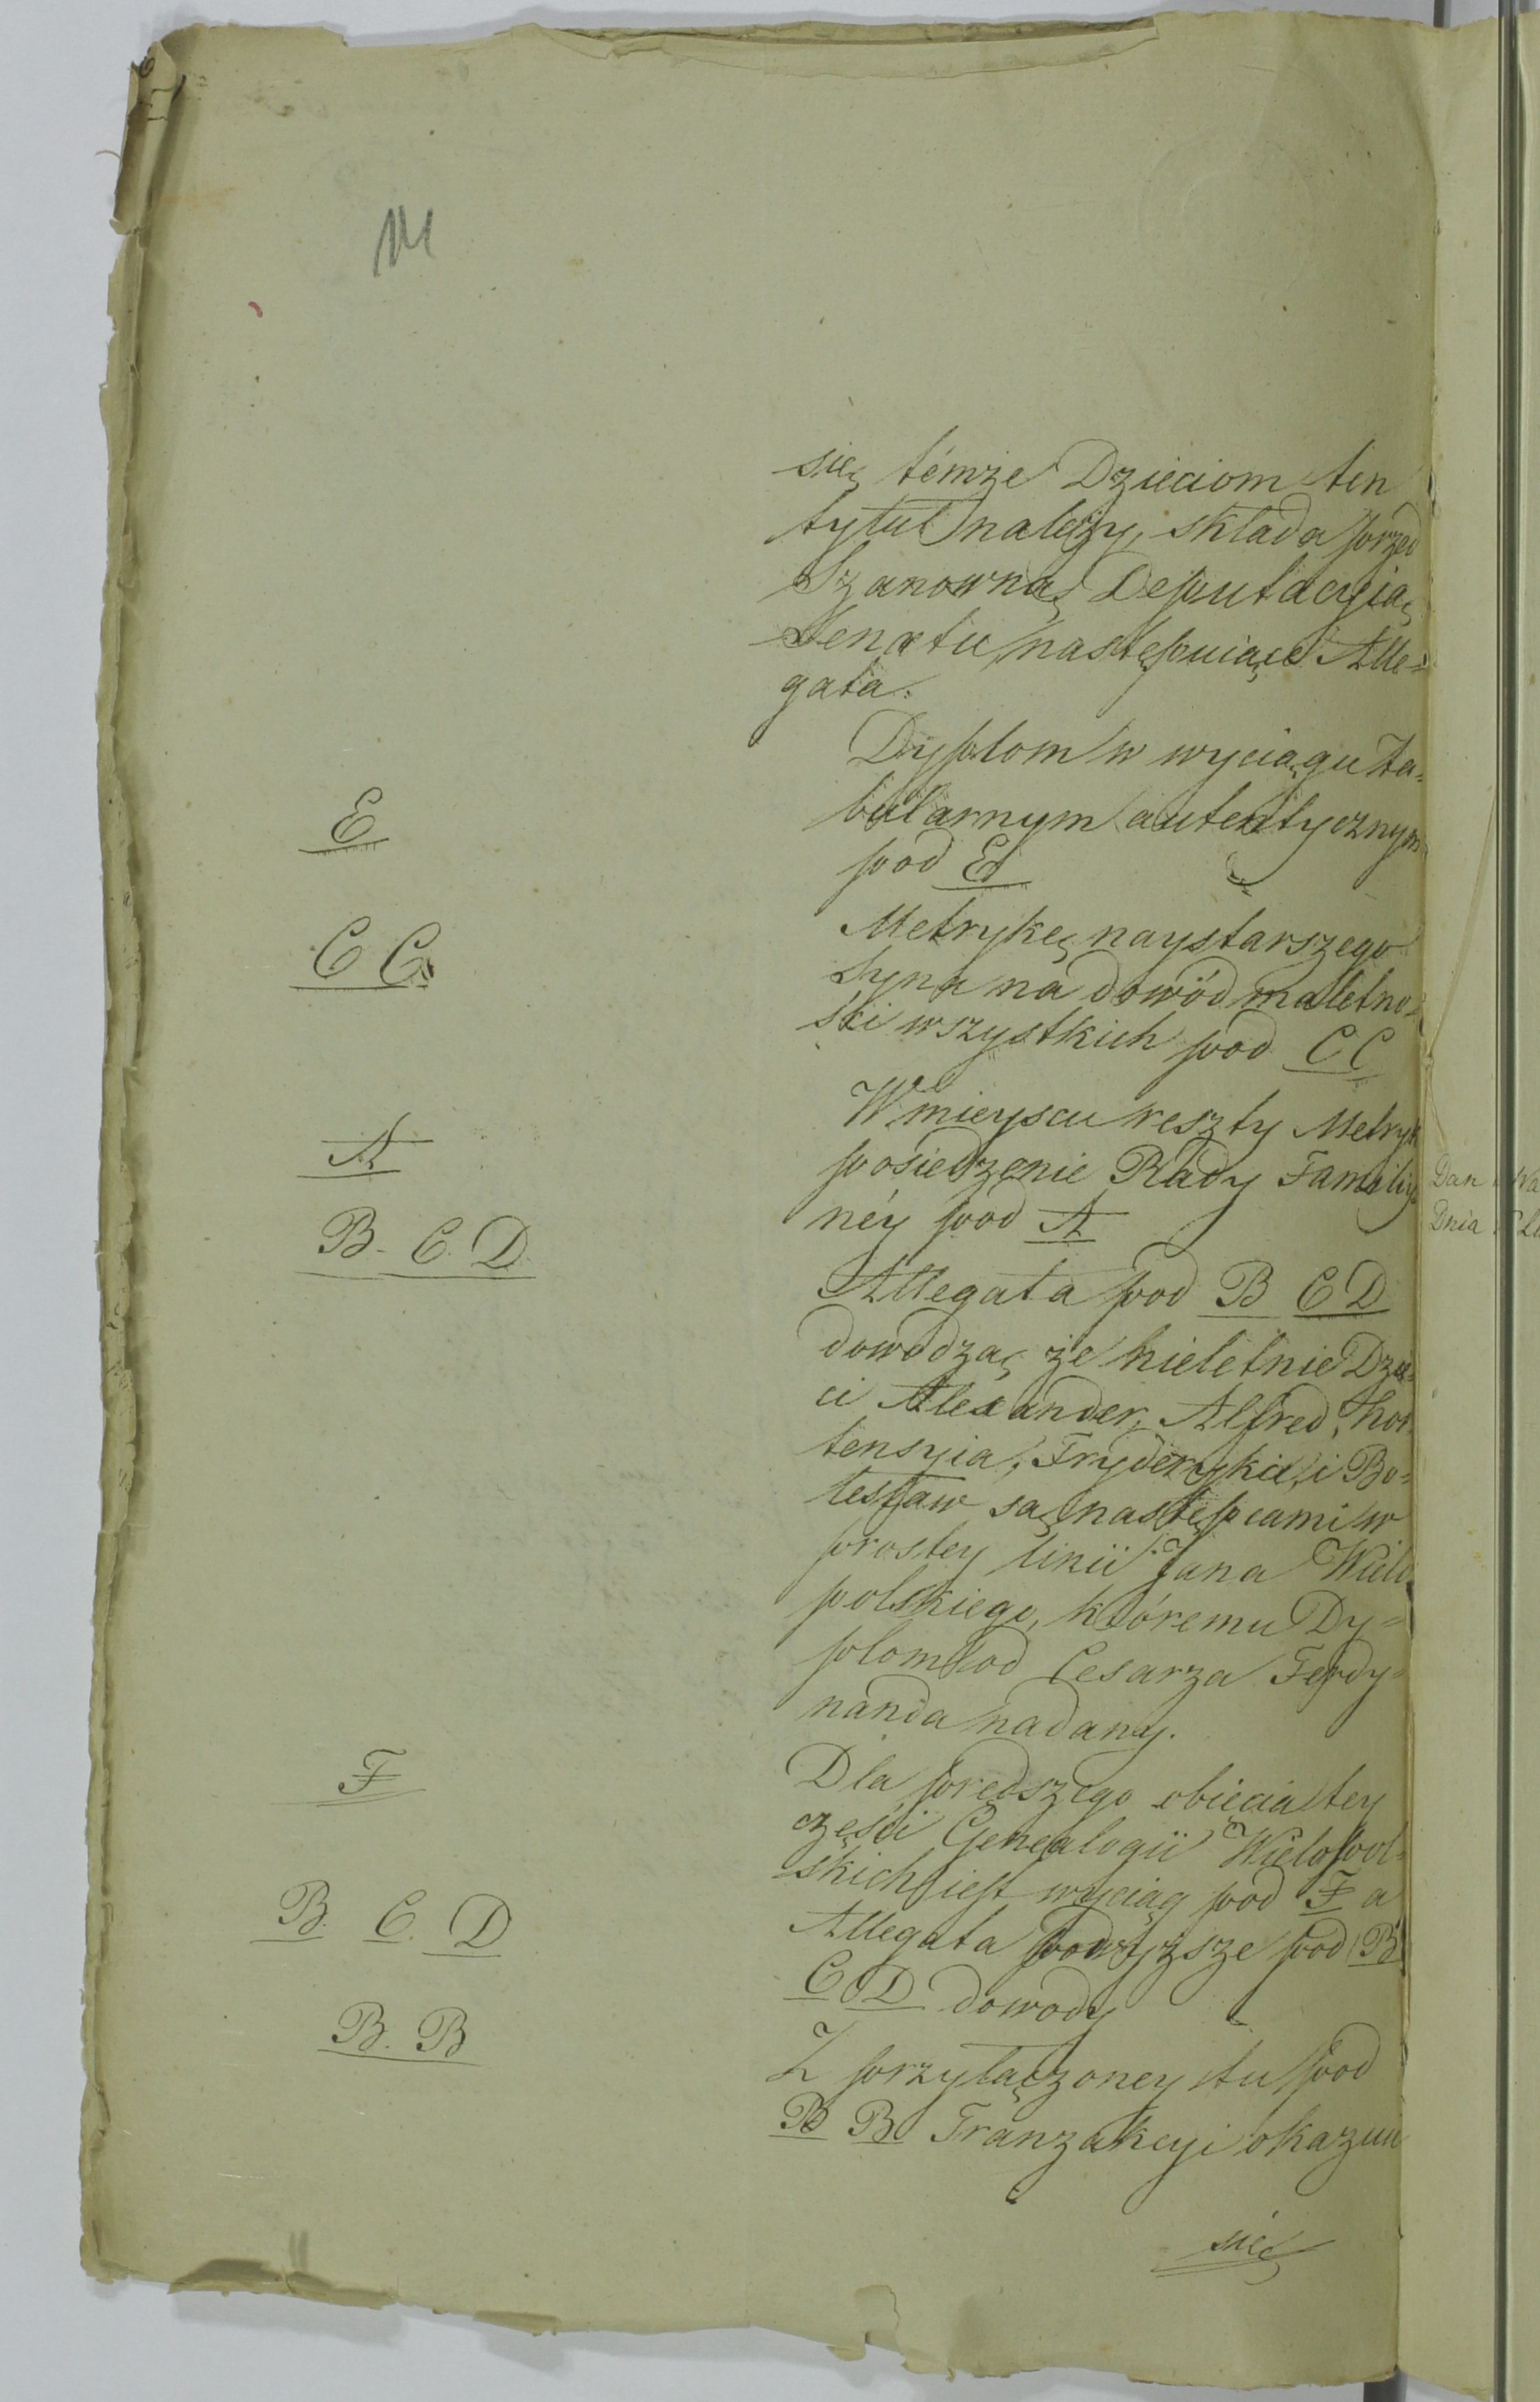 się témże Dzieciom ten
tytuł należy, składa przed
Szanowną Deputacyią
Senatu, następuiące Alle=
gata.
Dyplom w wyciągu Ta=
bularnym autentycznym
pod E
E
Metrykę naystarszego
Syna na dowód małetno=
ści wszystkich pod CC
C C.
W mieyscu reszty Metryk
posiedzenie Rady Familiy
néy pod A
A
Allegata pod B C D
B. C. D
dowodzą że nieletnie Dzie=
ci Alexander, Alfred, Hor
tensyia, Fryderyka, i Bo=
lesław są następcami w
prostey linii Jana Wielo
polskiego, któremu Dy=
plom od Cesarza Ferdy=
nanda nadany.
Dla prędszego obięcia tey
części Genealogii Wielopol=
skich iest wyciąg pod F a
F
Allegata powyższe pod B
C D dowody
B. C. D
Z przyłączoney tu pod
B B Tranzakcyi okazuie
B. B
się
Dan
Dnia